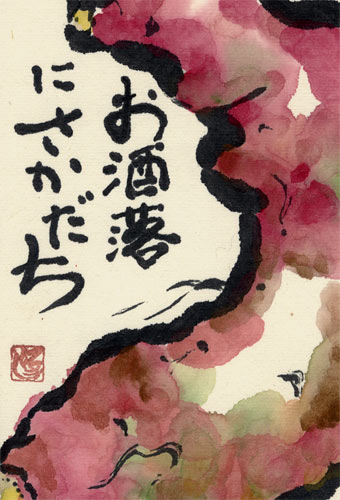 お洒落
にさかだち